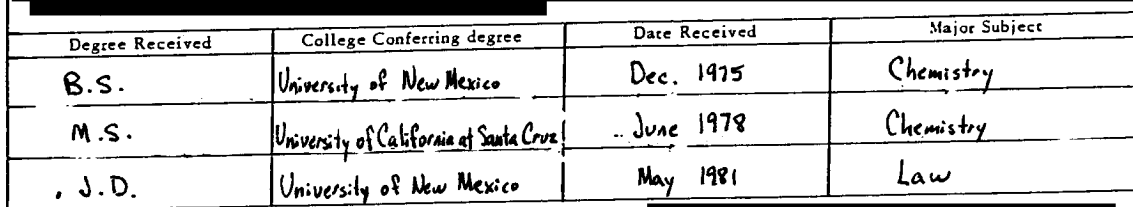 Degree Received College Conferring degree Date Received Major Subject
B.S. University of New Mexico Dec. 1975 Chemistry
M.S. University of California at Santa Cruz June 1978 Chemistry
J.D. University of New Mexico May 1981 Law